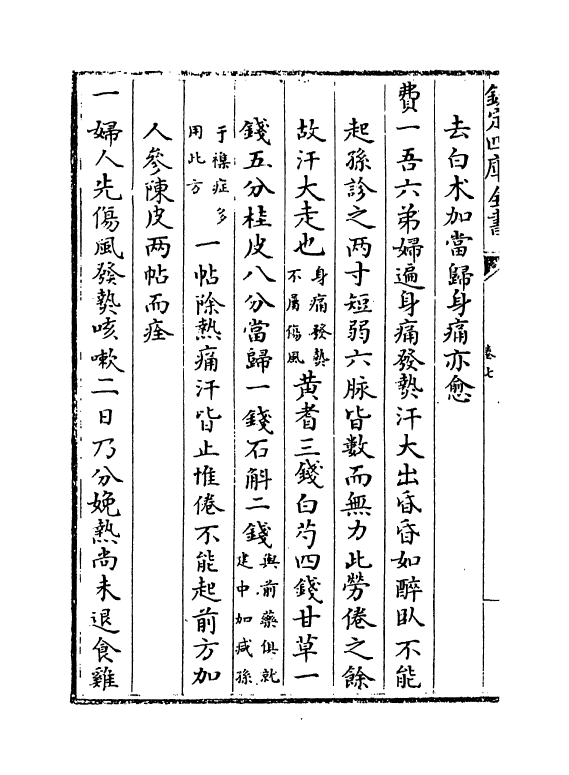 欽定四庫全書
卷七
去白术加當歸身痛亦愈
費一吾六弟婦遍身痛發熱汗大出昏昏如醉臥不能
起孫診之两寸短弱六脉皆數而無力此勞倦之餘
故汗大走也身痛發熱不屬傷風黄耆三錢白芍四錢甘草一
錢五分桂皮八分當歸一錢石斛二錢與前藥俱就建中加减孫
于雜症多用此方一帖除熱痛汗皆止惟倦不能起前方加
人參陳皮两帖而痊
一婦人先傷風發熱咳嗽二日乃分娩熱尚未退食雞